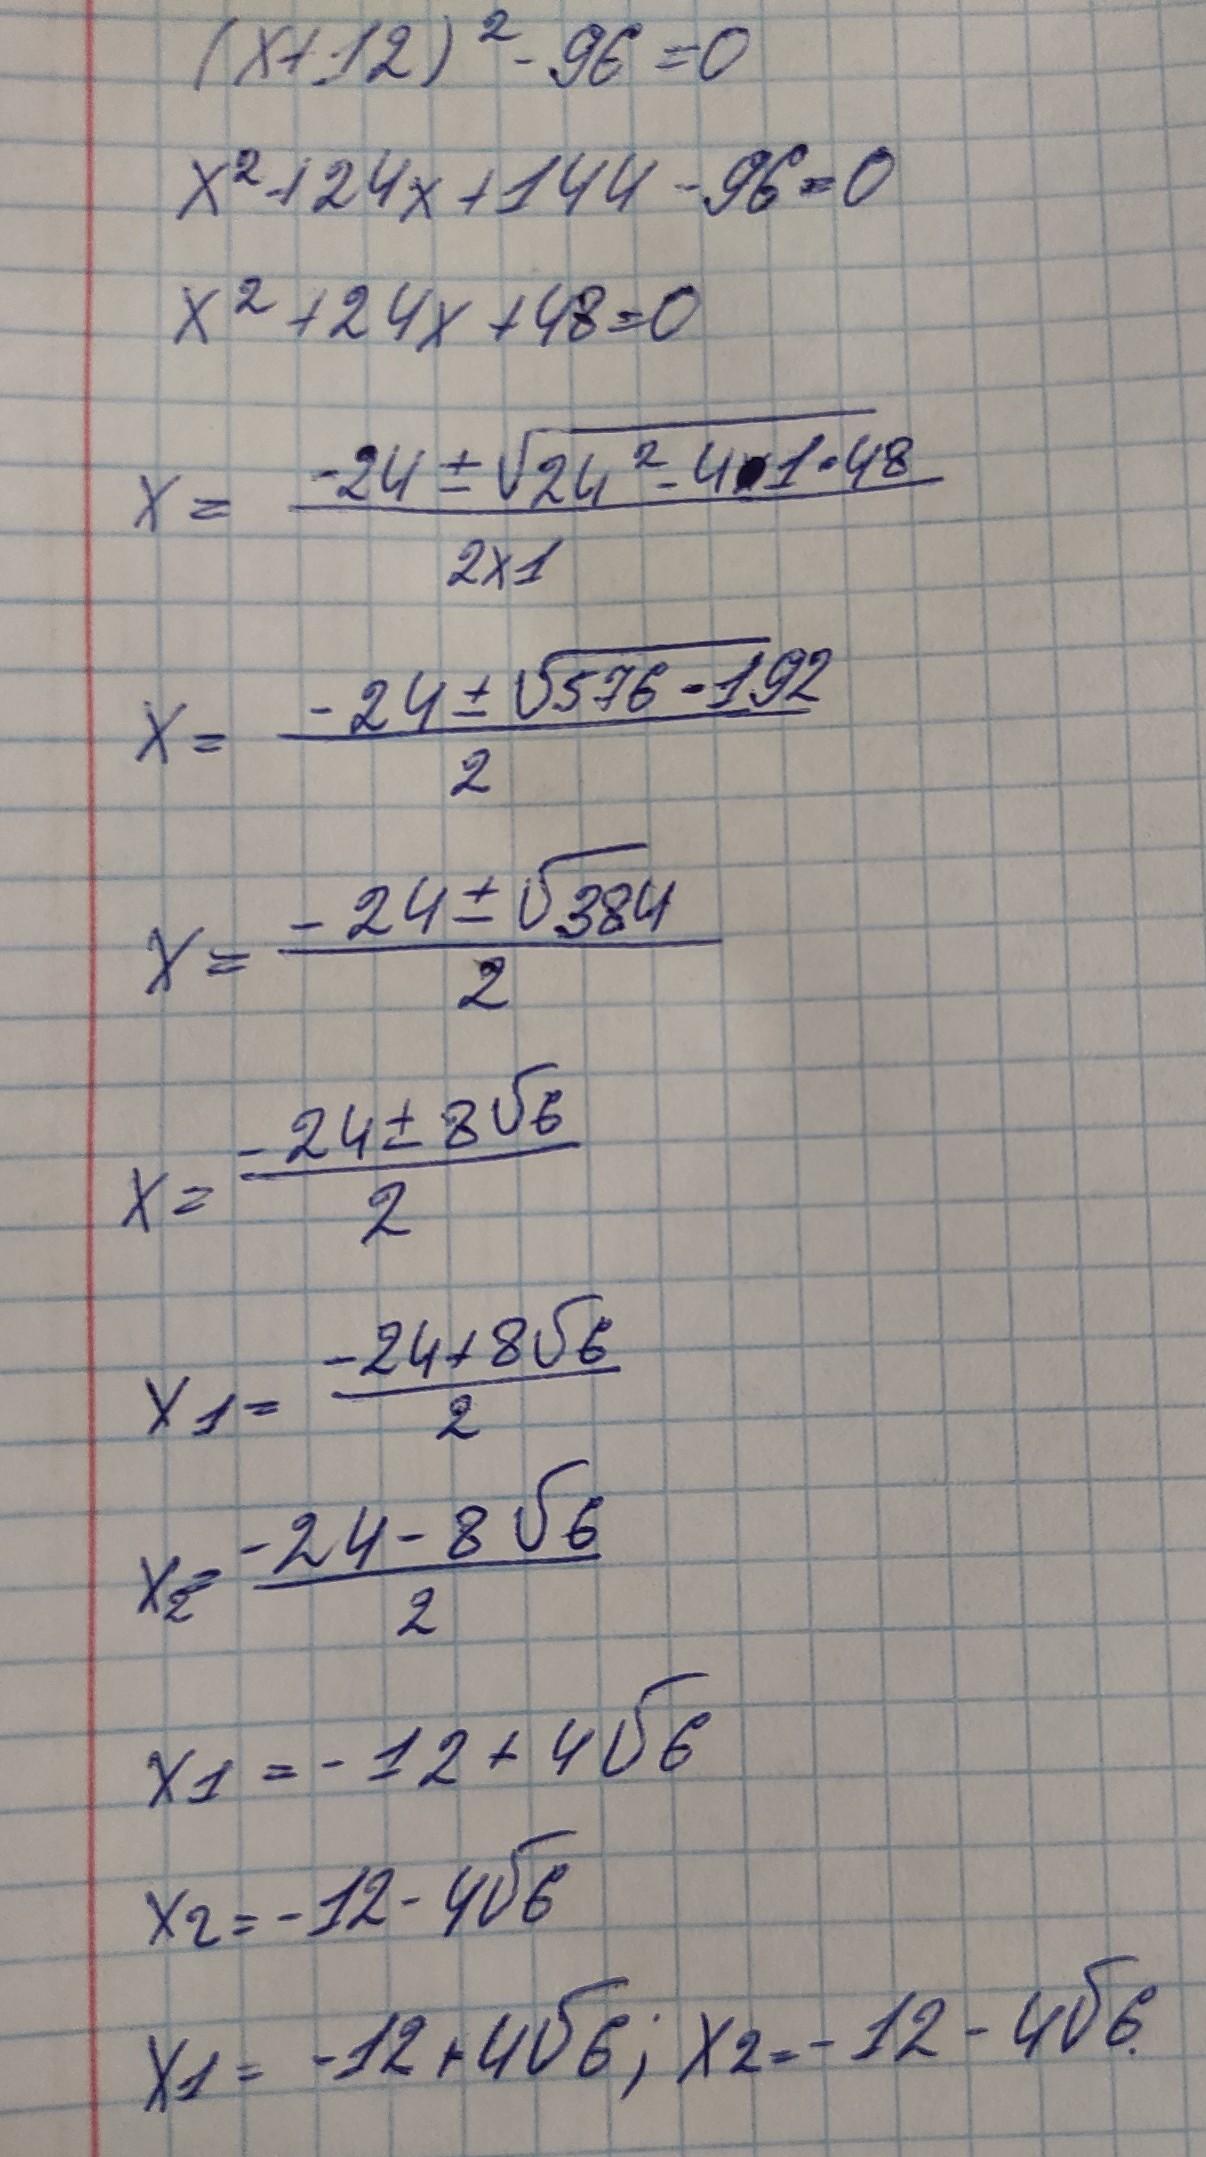 (x+12)² - 96 = 0
x² + 24x + 144 - 96 = 0
x² + 24x + 48 = 0
x = (-24 ± √(24² - 4·1·48)) / (2x1)
x = (-24 ± √(576 - 192)) / 2
x = (-24 ± √384) / 2
x = (-24 ± 8√6) / 2
x1 = (-24 + 8√6) / 2
x2 = (-24 - 8√6) / 2
x1 = -12 + 4√6
x2 = -12 - 4√6
x1 = -12 + 4√6; x2 = -12 - 4√6.